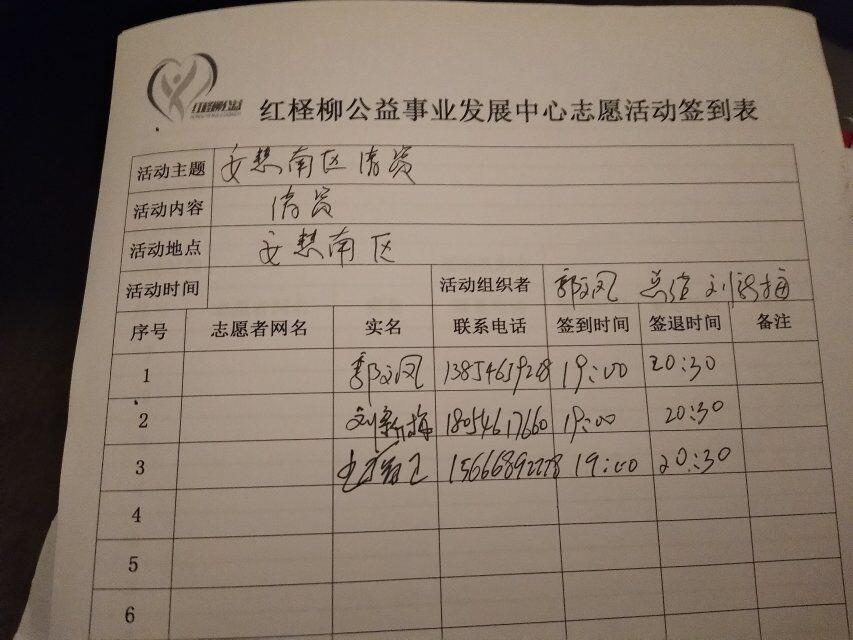 红柽柳公益
红柽柳公益事业发展中心志愿活动签到表
活动主题 安慧南区清资
活动内容 清资
活动地点 安慧南区
活动时间 活动组织者 郭文凤 刘新梅
序号 志愿者网名 实名 联系电话 签到时间 签退时间 备注
1 郭文凤 13854659228 19:00 20:30
2 刘新梅 18054617660 19:00 20:30
3 15666892228 19:00 20:30
4
5
6